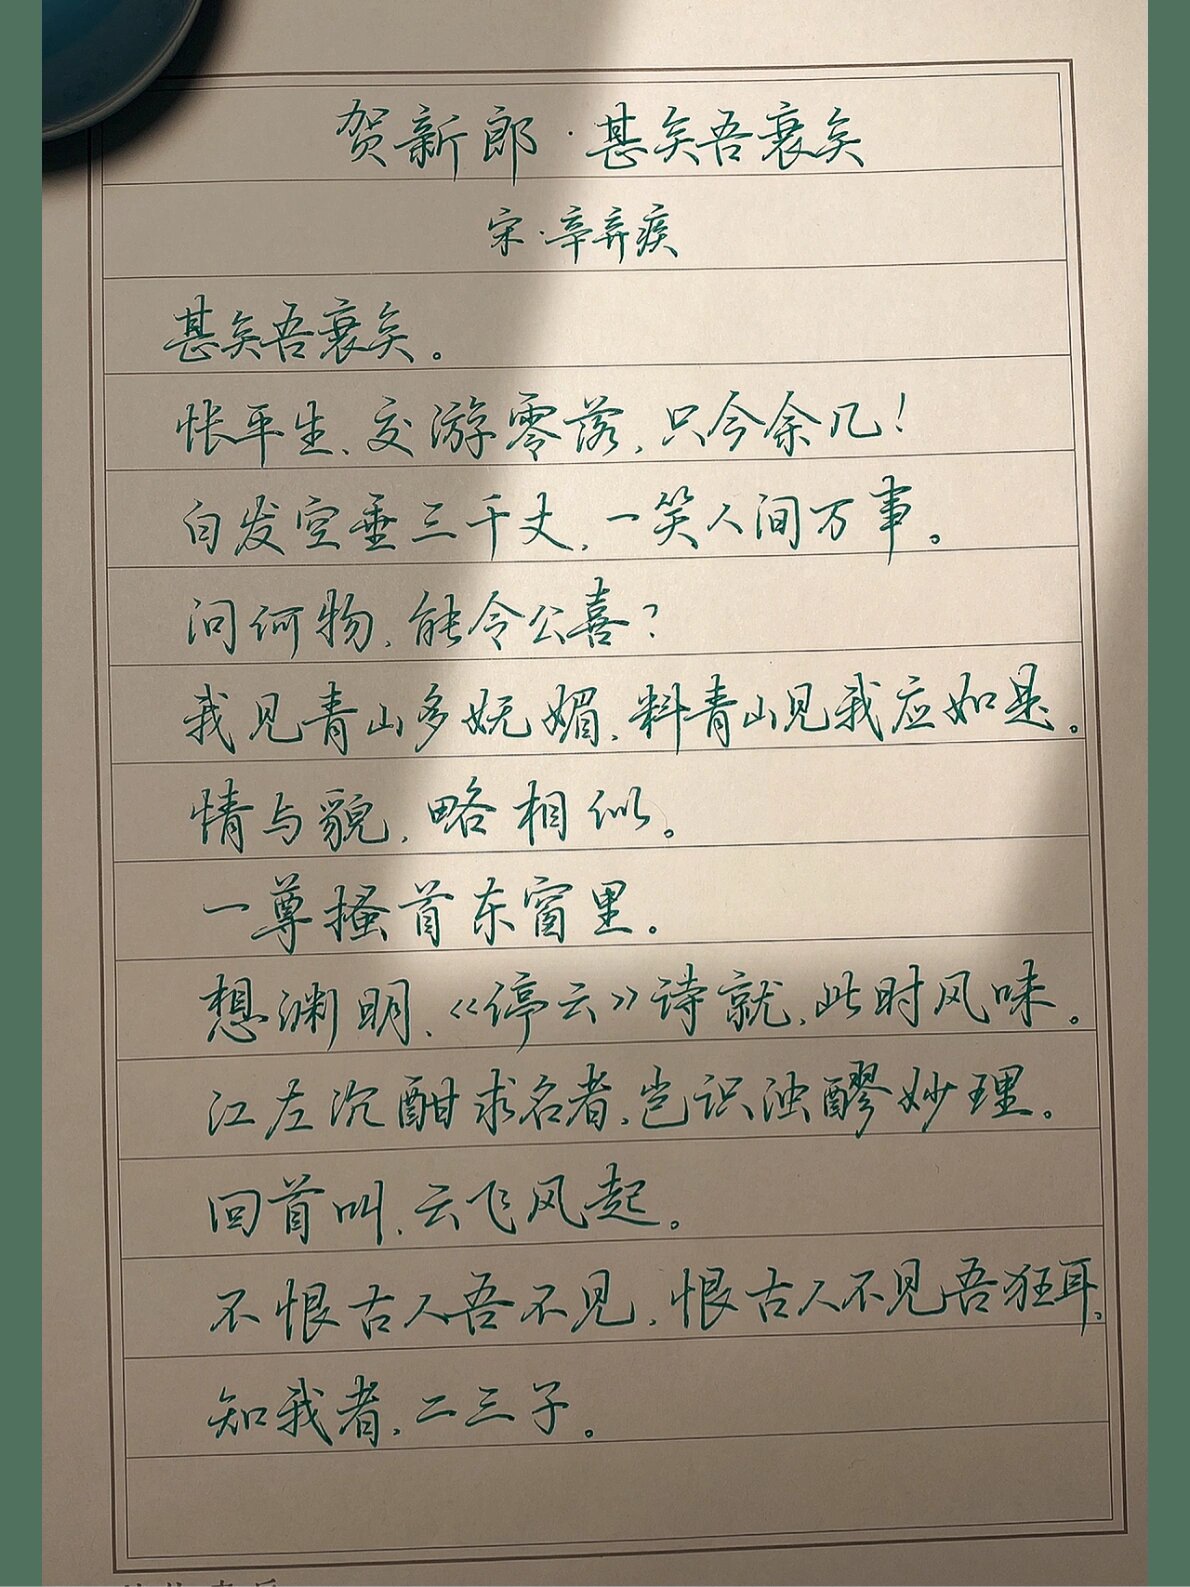 贺新郎·甚矣吾衰矣
宋·辛弃疾
甚矣吾衰矣。
怅平生、交游零落,只今余几!
白发空垂三千丈,一笑人间万事。
问何物、能令公喜?
我见青山多妩媚,料青山见我应如是。
情与貌,略相似。
一尊搔首东窗里。
想渊明、《停云》诗就,此时风味。
江左沉酣求名者,岂识浊醪妙理。
回首叫、云飞风起。
不恨古人吾不见,恨古人不见吾狂耳。
知我者,二三子。